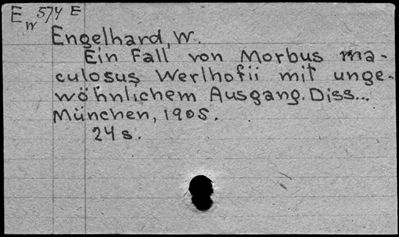 Ew 574 E
Engelhard, W.
Ein Fall von Morbus ma-
culosus Werlhofii mit unge-
wöhnlichem Ausgang. Diss...
München, 1905.
24 s.